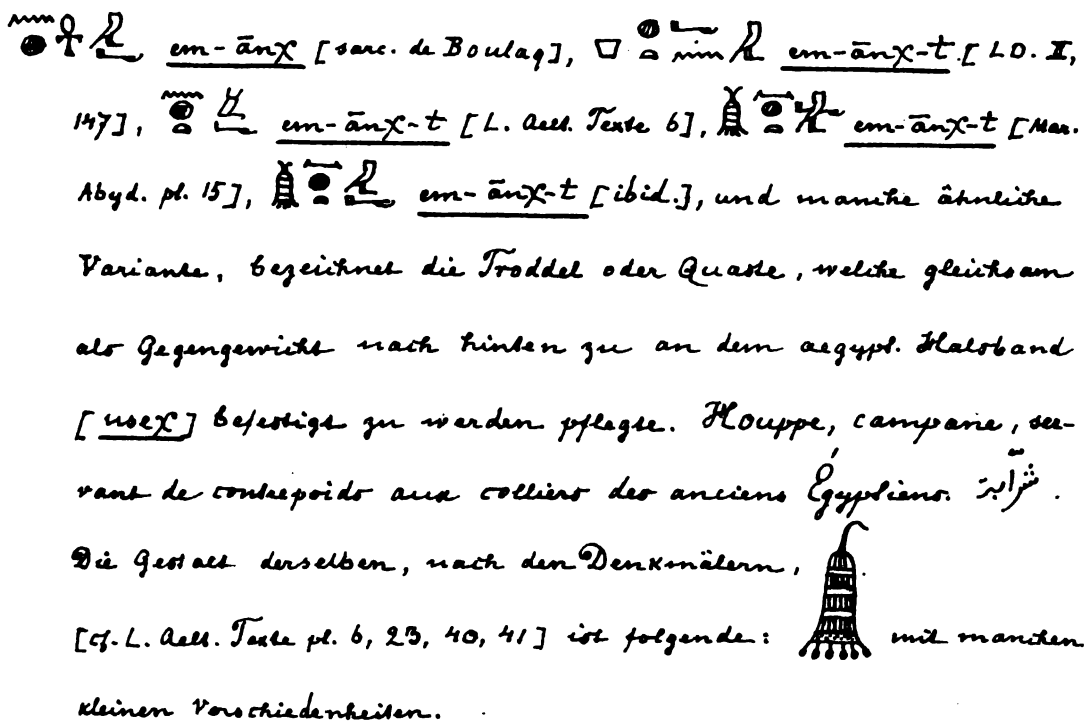 em-ānχ [sarc. de Boulaq], em-ānχ-t [LD. II,
147], em-ānχ-t [L. Aelt. Texte 6], em-ānχ-t [Mar.
Abyd. pl. 15], em-ānχ-t [ibid.], und manche ähnliche
Variante, bezeichnet die Troddel oder Quaste, welche gleichsam
als Gegengewicht nach hinten zu an dem aegypt. Halsband
[usex] befestigt zu werden pflegte. Houppe, campane, ser-
vant de contrepoids aux colliers des anciens Égyptiens. شرّابة.
Die Gestalt derselben, nach den Denkmälern,
[cf. L. Aelt. Texte pl. 6, 23, 40, 41] ist folgende: mit manchen
kleinen Verschiedenheiten.